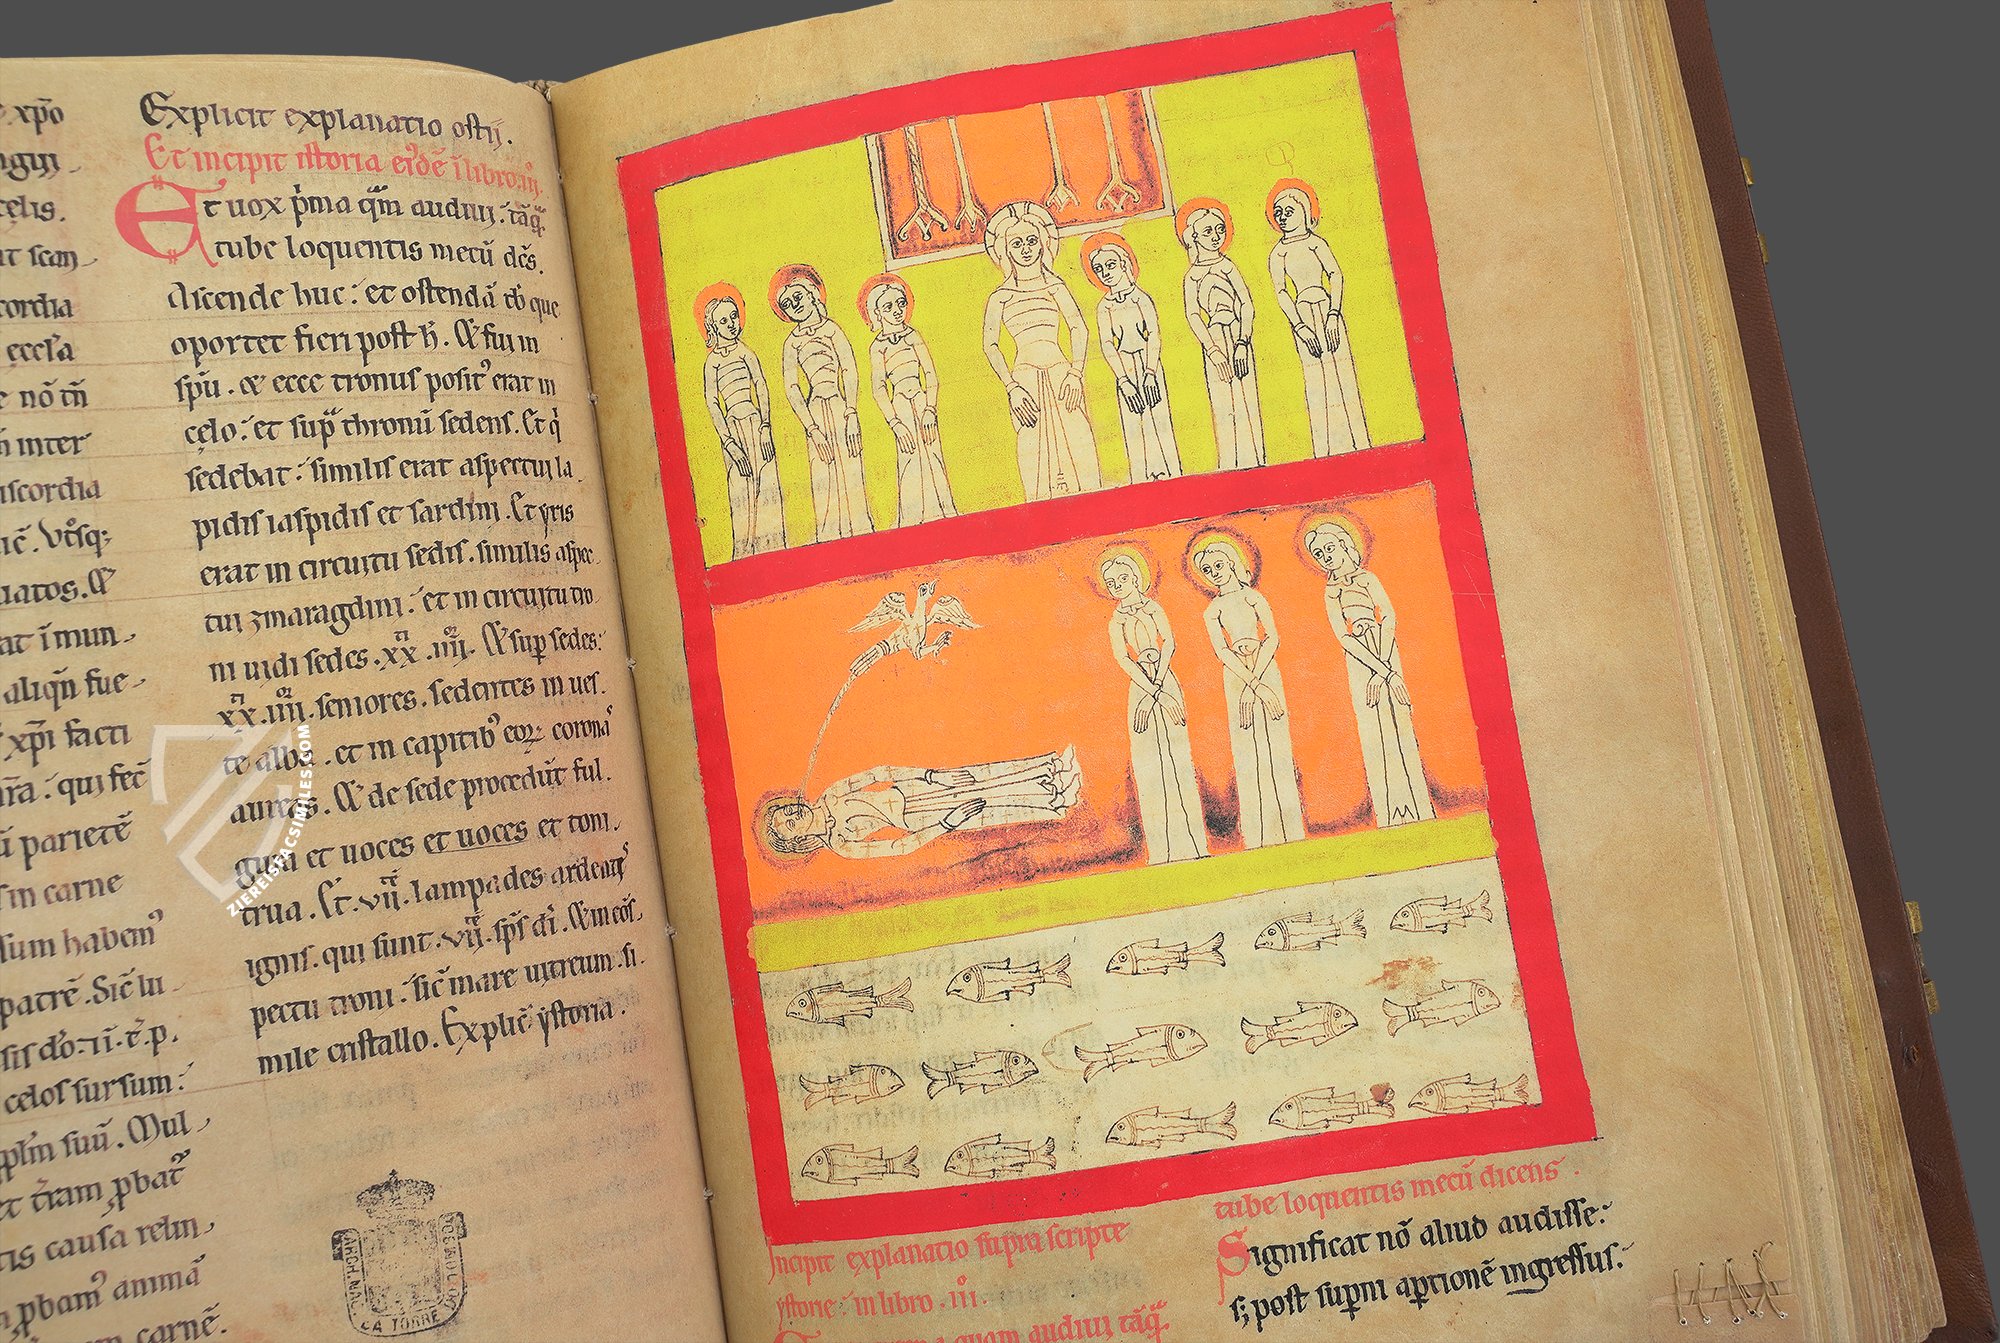 xp̄o
celis.
cordia
e nō tn̄
n̄ inter
iscordia
at ī mun
aliqn̄ fue
xp̄i facti
ū parietē
in carne
sum habem᷒
patrē. Sic̄ lu
celos sursum:
et t̄ram ꝓbat
tis causa relin
ꝓbam᷒ animā
carnē.
Explicit explanatio ostij.
Et incipit istoria eidē ī libro. iij.
Et uox p̄ma quā audiui: tāq̄
tube loquentis mecū dc̄s.
Ascende huc: et ostendā tibi que
oportet fieri post h̄. Et fui in
spū. et ecce tronus posit᷒ erat in
celo: et sup̄ thronū sedens. Et q̄
sedebat: similis erat aspectui la
pidis iaspidis et sardini. Et yris
erat in circuitu sedis. similis aspec
tui zmaragdini: et in circuitu tro
ni uidi sedes. xx. iiij. Et sup̄ sedes:
xx. iiij. seniores. sedentes in ues
te alba. et in capitib᷒ eoꝝ corona᷒
aureas. Et de sede procedūt ful
gura et uoces et uoces et toni
trua. Et. vij. lampades ardent᷒
ignis. qui sunt. vij. sps̄ dī. Et in cōs
pectu troni: sic̄ mare uitreum. si
mile cristallo. Explic̄ ystoria.
Incipit explanatio supra scripte
ystorie: in libro. iii.
quam audiui tāq̄
tube loquentis mecū dicens.
Significat nō aliud audisse:
sꝫ post sup̄ni aptionē ingressus:
ARCH. NAC.
LA TORRE
ZIEREISFACSIMILES.COM